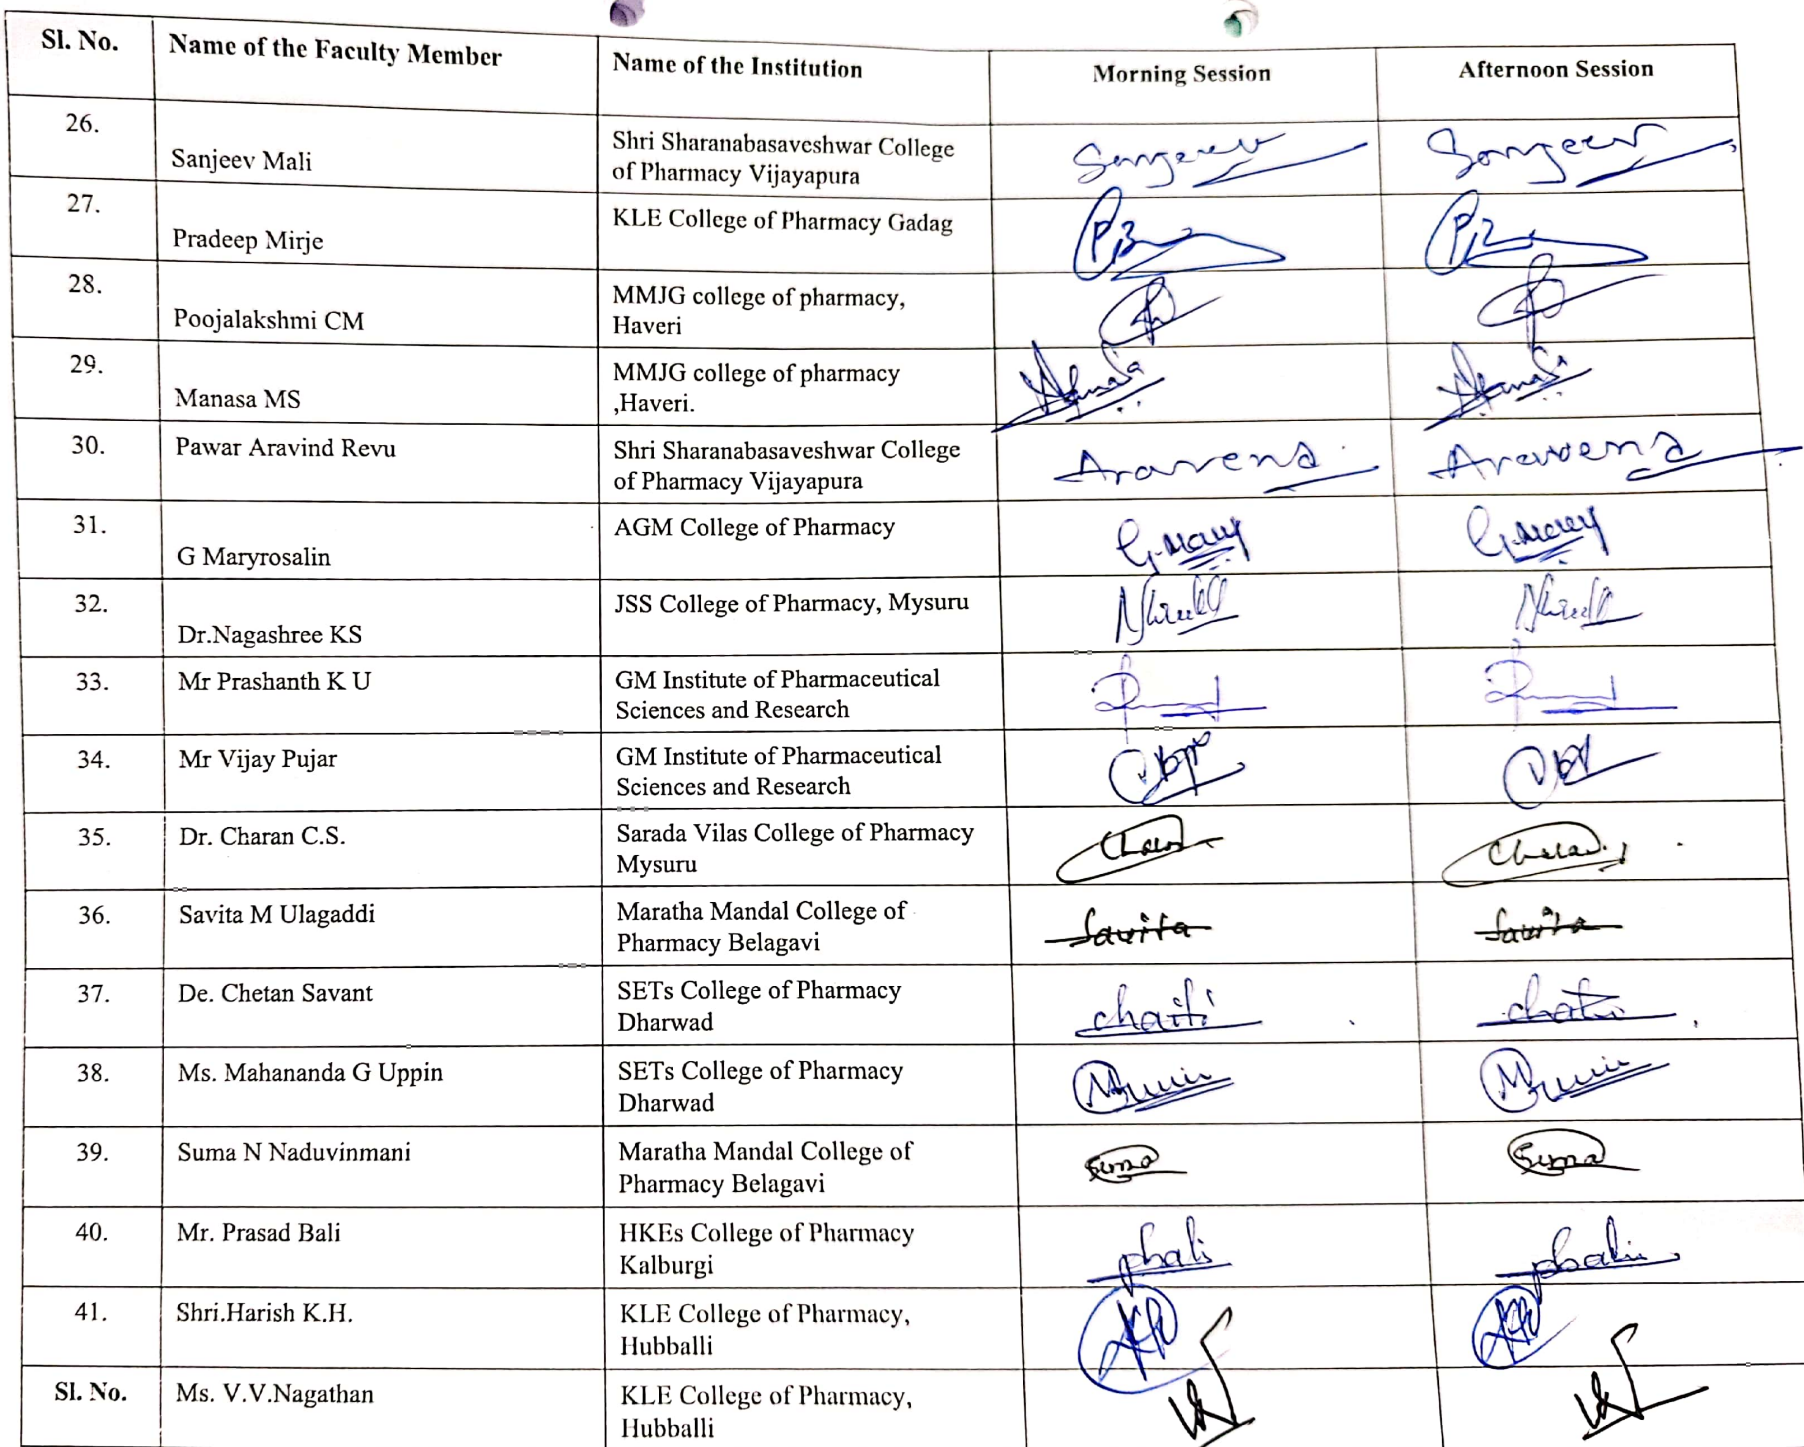 Sl. No. Name of the Faculty Member Name of the Institution Morning Session Afternoon Session
26. Sanjeev Mali Shri Sharanabasaveshwar College
of Pharmacy Vijayapura Sanjeev Sanjeev
27. Pradeep Mirje KLE College of Pharmacy Gadag
28. Poojalakshmi CM MMJG college of pharmacy,
Haveri
29. Manasa MS MMJG college of pharmacy
,Haveri.
30. Pawar Aravind Revu Shri Sharanabasaveshwar College
of Pharmacy Vijayapura
31. G Maryrosalin AGM College of Pharmacy G.Mary G.Mary
32. Dr.Nagashree KS JSS College of Pharmacy, Mysuru
33. Mr Prashanth K U GM Institute of Pharmaceutical
Sciences and Research
34. Mr Vijay Pujar GM Institute of Pharmaceutical
Sciences and Research
35. Dr. Charan C.S. Sarada Vilas College of Pharmacy
Mysuru
36. Savita M Ulagaddi Maratha Mandal College of
Pharmacy Belagavi Savita Savita
37. De. Chetan Savant SETs College of Pharmacy
Dharwad
38. Ms. Mahananda G Uppin SETs College of Pharmacy
Dharwad
39. Suma N Naduvinmani Maratha Mandal College of
Pharmacy Belagavi Suma Suma
40. Mr. Prasad Bali HKEs College of Pharmacy
Kalburgi
41. Shri.Harish K.H. KLE College of Pharmacy,
Hubballi
Sl. No. Ms. V.V.Nagathan KLE College of Pharmacy,
Hubballi